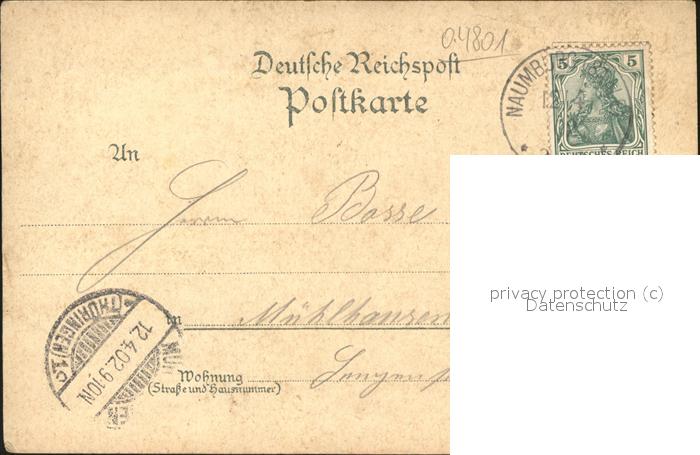 04801
Deutsche Reichspost
Postkarte
5 5
DEUTSCHES REICH
NAUMBURG
An
Herrn Bosse
in Mühlhausen
Wohnung
(Straße und Hausnummer)
(THÜRINGEN) 1c
12.4.02.9-10N.
privacy protection (c)
Datenschutz